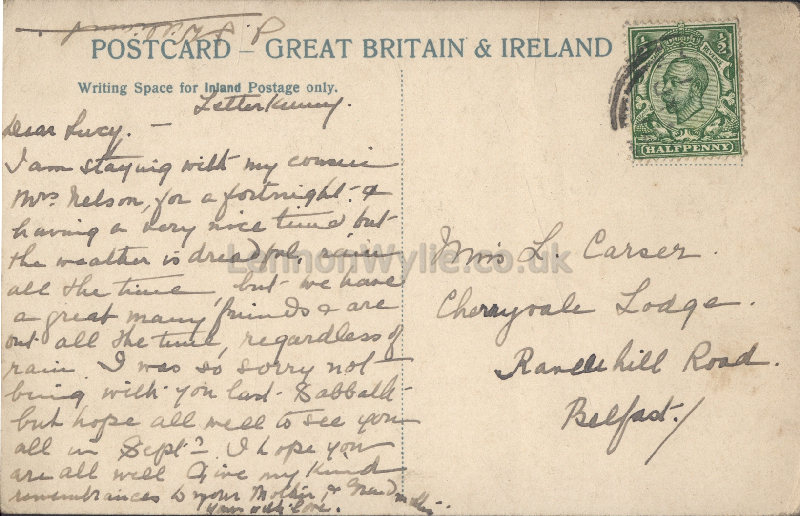 POSTCARD – GREAT BRITAIN & IRELAND
Writing Space for Inland Postage only.
½ ½
HALFPENNY
Letterkenny.
Dear Lucy. –
I am staying with my cousin
Mrs Nelson, for a fortnight. &
having a very nice time but
the weather is dreadful, rain
all the time, but we have
a great many friends & are
out all the time, regardless of
rain. I was so sorry not
being with you last Sabbath
but hope all well to see you
all in Sept – I hope you
are all well Give my kind
remembrances to your Mother, & Grandmother.
Yours with love.
Miss L. Carser.
Cherryvale Lodge.
Ravenhill Road.
Belfast.
LennonWylie.co.uk